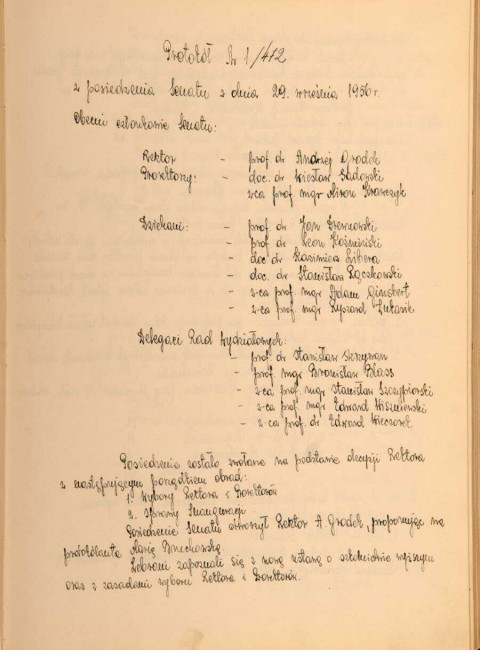 Protokół Nr 1/472
z posiedzenia Senatu z dnia 29. września 1956 r.
Obecni członkowie Senatu:
Rektor – prof. dr Andrzej Grodek
Prorektorzy: – doc. dr Wiesław Sadowski
z-ca prof. mgr Miron Krawczyk
Dziekani: – prof. dr Jan
– prof. dr Leon Koźmiński
– doc dr Kazimierz Libera
– doc. dr Stanisław Rączkowski
– z-ca prof. mgr Adam Ginsbert
– z-ca prof. mgr Ryszard Łukasik
Delegaci Rad Wydziałowych:
– prof. dr Stanisław Skrzywan
– prof. mgr Bronisław Blass
– z-ca prof. mgr Stanisław Szczypiorski
– z-ca prof. mgr Edward Wiszniewski
– z-ca prof. dr Edward Wieczorek
Posiedzenie zostało zwołane na podstawie decyzji Rektora
z następującym porządkiem obrad:
1. Wybory Rektora i Prorektorów
2. Sprawy Inauguracji
Posiedzenie Senatu otworzył Rektor A. Grodek, proponując na
protokólanta
Zebrani zapoznali się z nową ustawą o szkolnictwie wyższym
oraz z zasadami wyboru Rektora i Prorektorów.